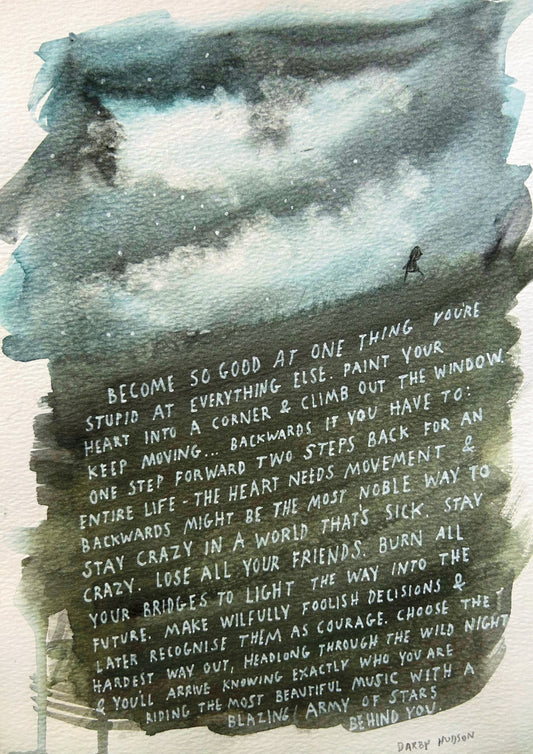 BECOME SO GOOD AT ONE THING YOU'RE
STUPID AT EVERYTHING ELSE. PAINT YOUR
HEART INTO A CORNER & CLIMB OUT THE WINDOW.
KEEP MOVING... BACKWARDS IF YOU HAVE TO:
ONE STEP FORWARD TWO STEPS BACK FOR AN
ENTIRE LIFE - THE HEART NEEDS MOVEMENT &
BACKWARDS MIGHT BE THE MOST NOBLE WAY TO
STAY CRAZY IN A WORLD THAT'S SICK. STAY
CRAZY. LOSE ALL YOUR FRIENDS. BURN ALL
YOUR BRIDGES TO LIGHT THE WAY INTO THE
FUTURE. MAKE WILFULLY FOOLISH DECISIONS &
LATER RECOGNISE THEM AS COURAGE. CHOOSE THE
HARDEST WAY OUT, HEADLONG THROUGH THE WILD NIGHT
& YOU'LL ARRIVE KNOWING EXACTLY WHO YOU ARE
RIDING THE MOST BEAUTIFUL MUSIC WITH A
BLAZING ARMY OF STARS
BEHIND YOU.
DARBY HUDSON